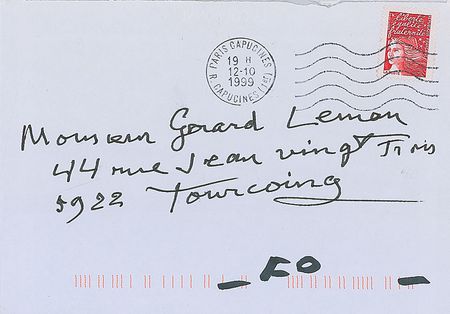 Liberté
égalité
fraternité
PARIS CAPUCINES (1E)
19 H
12-10
1999
R CAPUCINES (1E)
Monsieur Gérard Lemon
44 rue Jean vingt Trois
5922 Tourcoing
FO